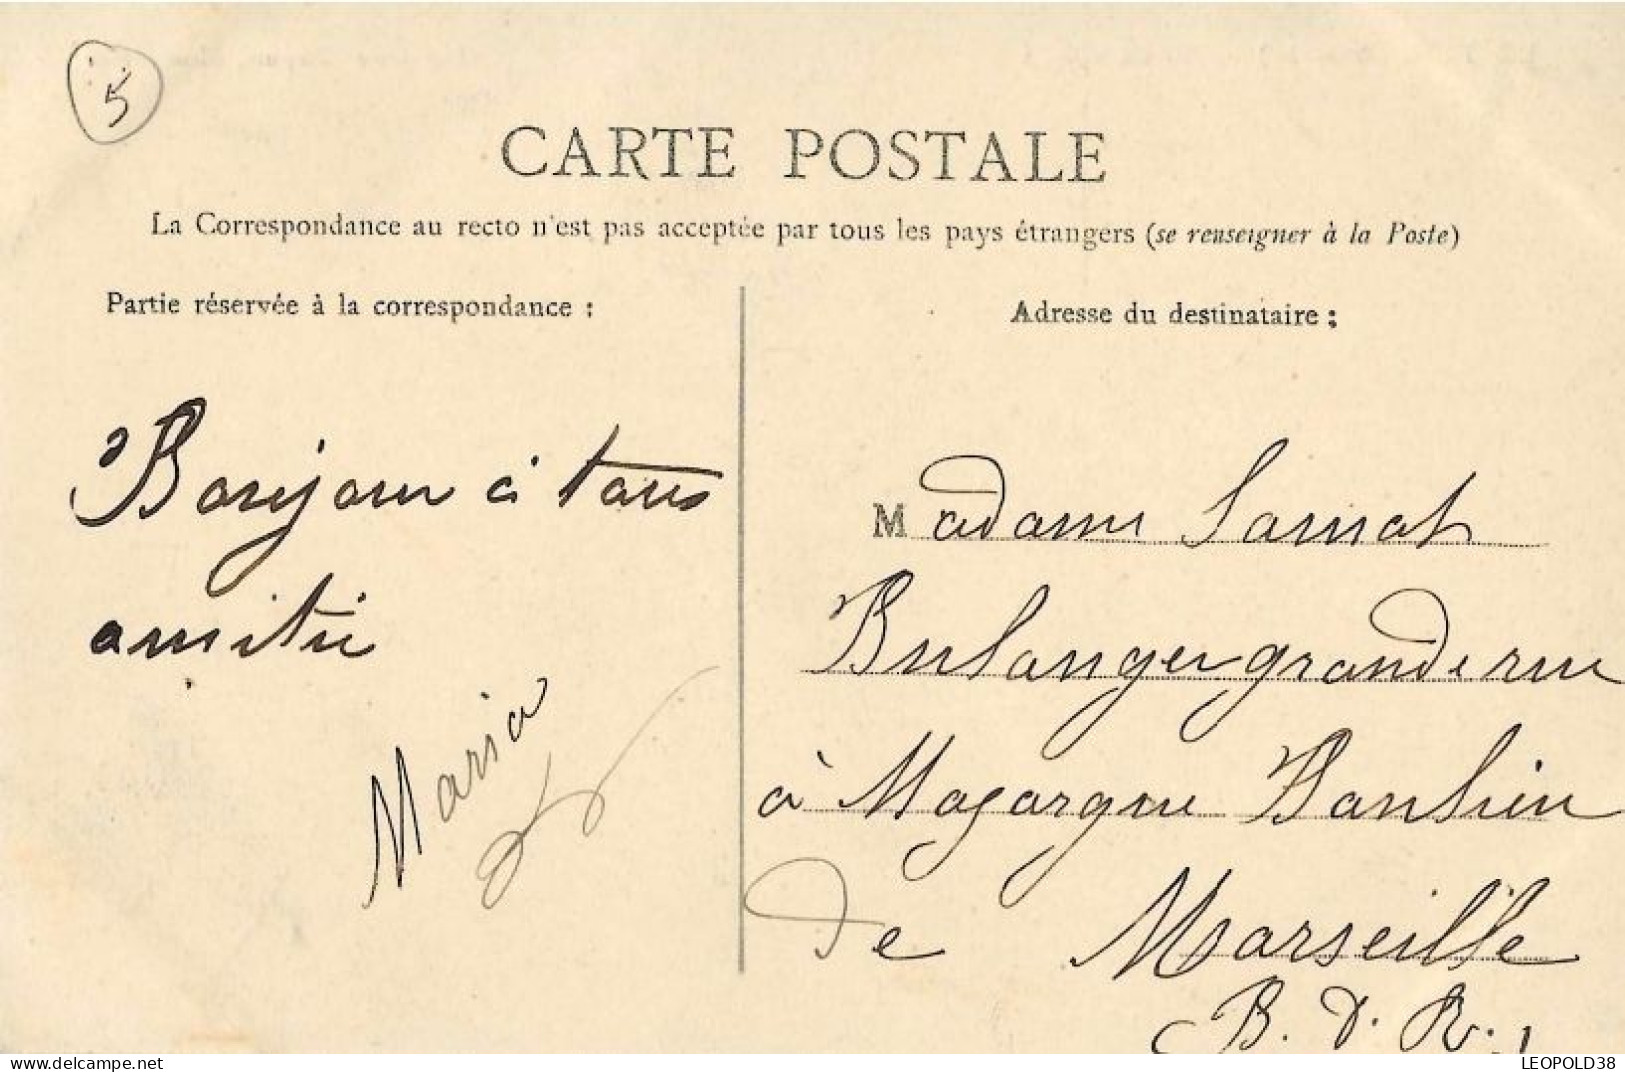 5
CARTE POSTALE
La Correspondance au recto n'est pas acceptée par tous les pays étrangers (se renseigner à la Poste)
Partie réservée à la correspondance :
Adresse du destinataire :
Bonjour à tous
amitié
Maria
Madame
Bulanger grande rue
à Magargue Banlieu
de Marseille
(B. d. R.)
LEOPOLD38